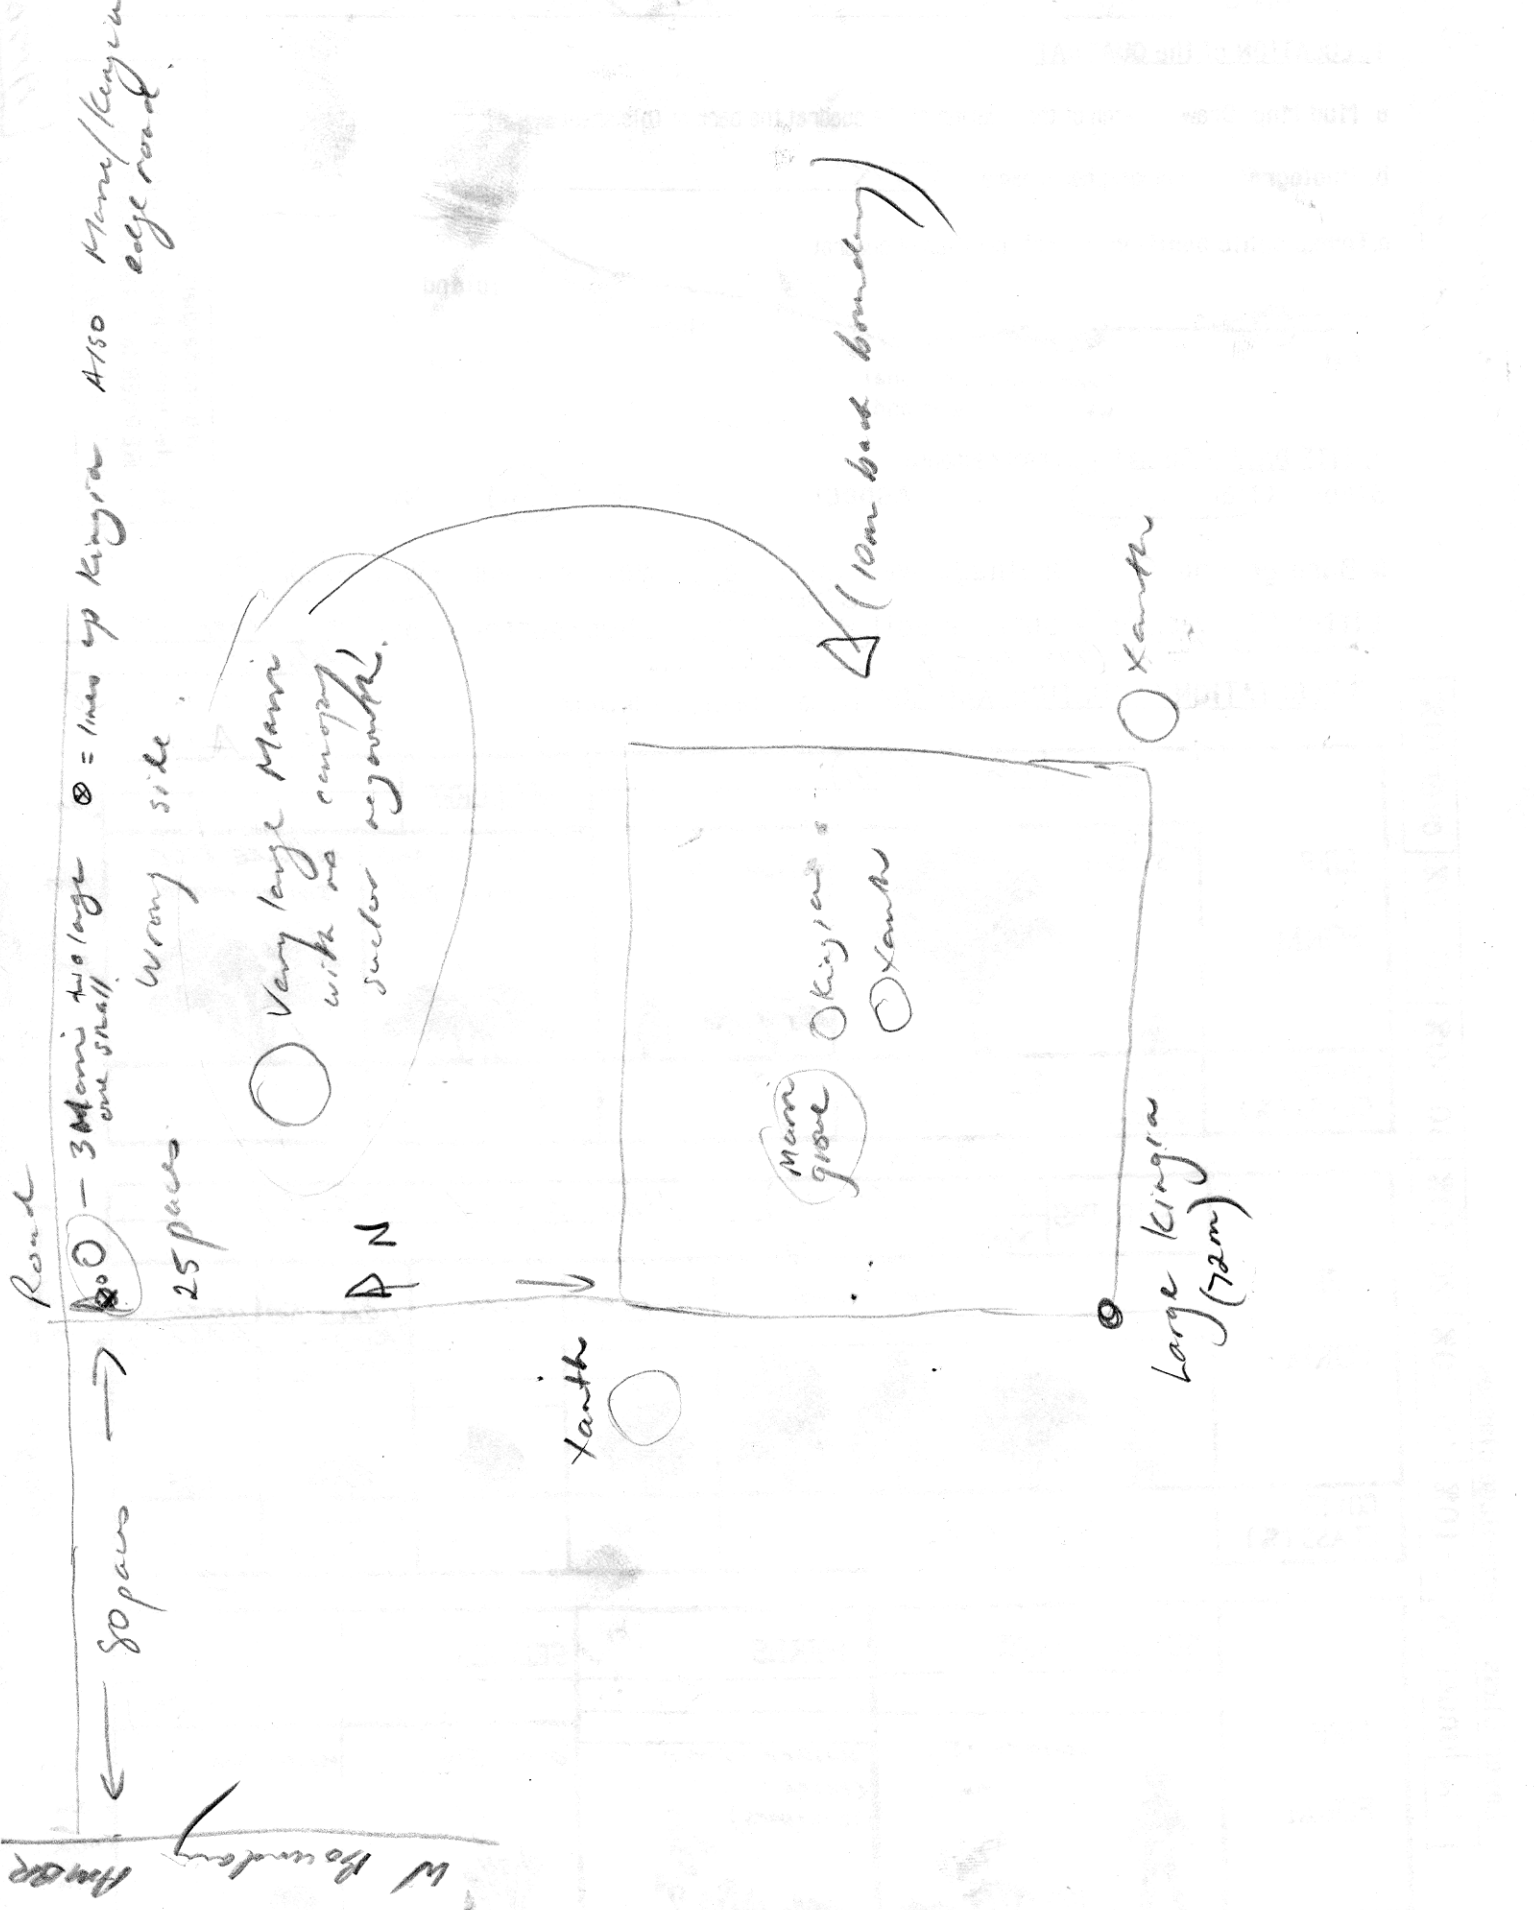 Road
3 Marri two large
one small
⊗ = lines up Kingia
Also Marri/Kingia
edge road.
← 80 paces →
25 paces
wrong side.
Very large Marri
with no canopy
sucker regrowth!
N
(10m back boundary)
Xanth
Marri
grove
Kingia
Xanth
Xanth
Large Kingia
(72m)
W Boundary